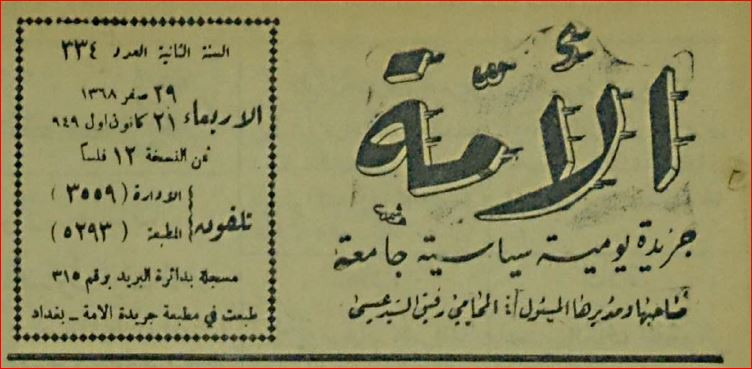 الأمة
جريدة يومية سياسية جامعة
صاحبها ومديرها المسئول : المحامي رفيق السيد عيسى
السنة الثانية العدد ٣٣٤
٢٩ صفر ١٣٦٨
الاربعاء ٢١ كانون اول ٩٤٩
ثمن النسخة ١٢ فلساً
تلفون الادارة ( ٣٥٥٩ )
المطبعة ( ٥٢٩٣ )
مسجلة بدائرة البريد برقم ٣١٥
طبعت في مطبعة جريدة الامة ــ بغداد